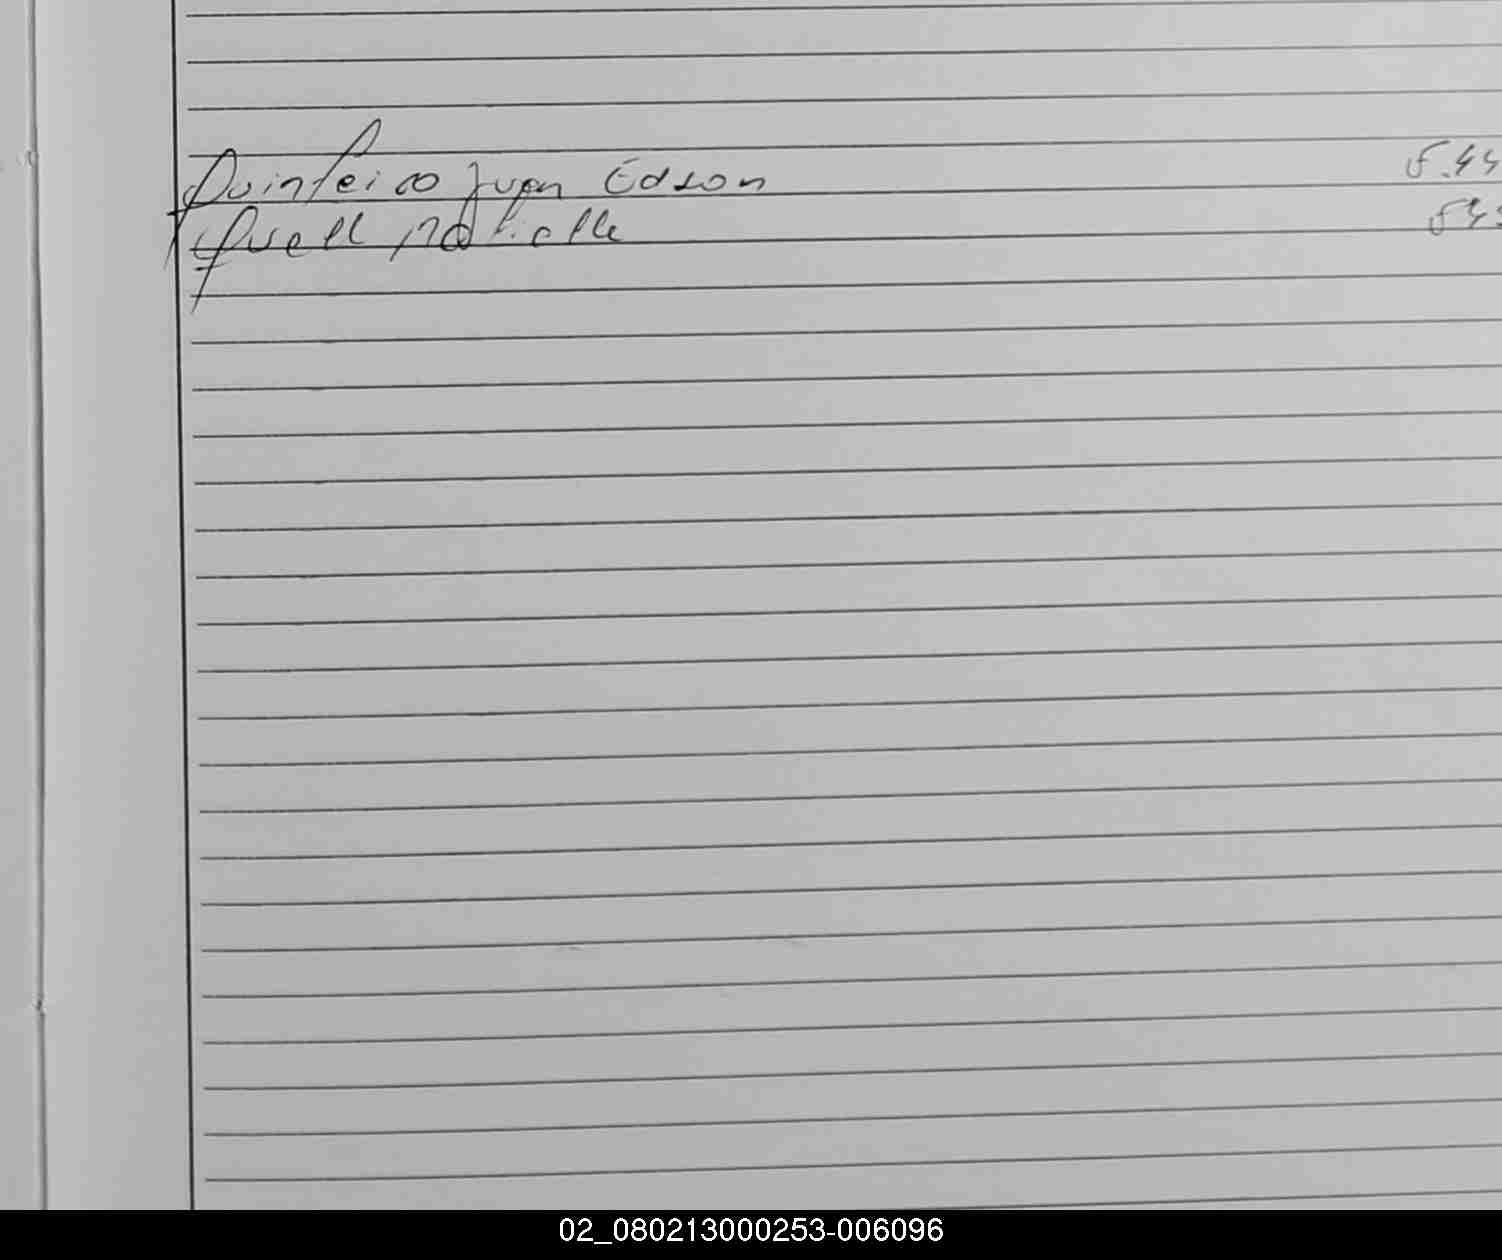 Quinteiro Juan Edson 5.44
Quell Nathalle 54
02_080213000253-006096